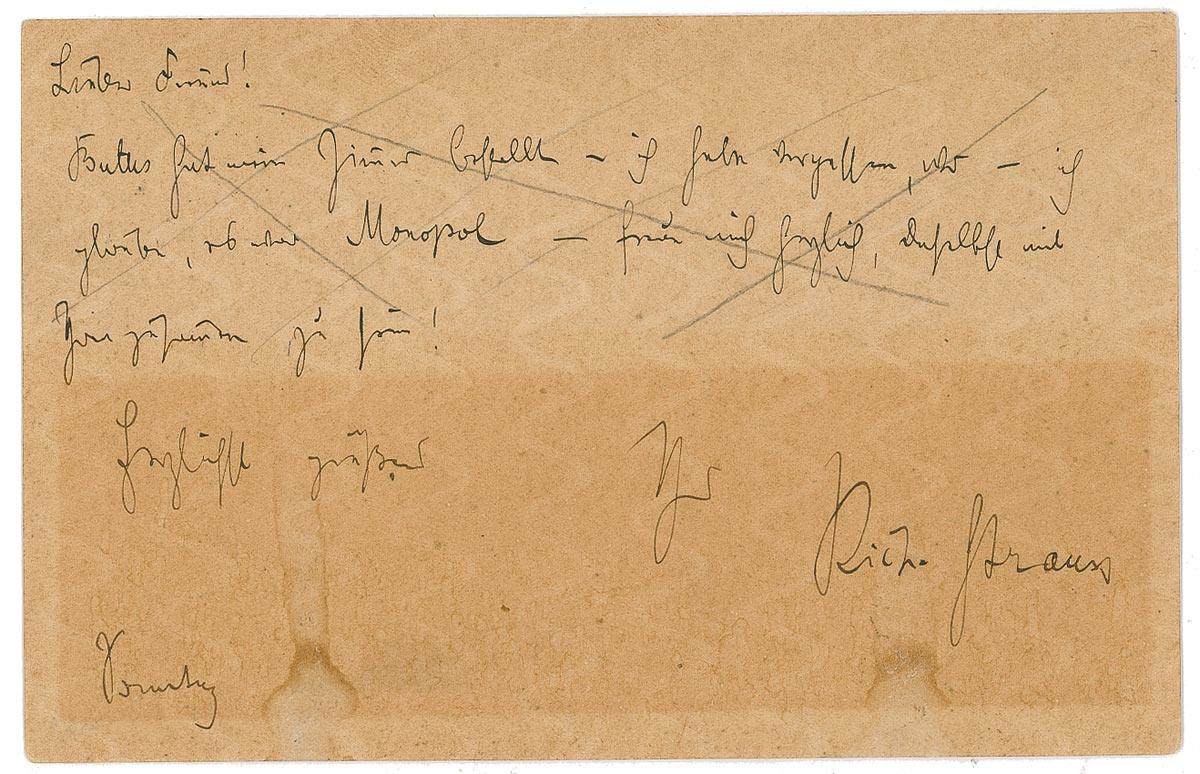 Lieber Freund!
hat mein Zimmer bestellt – ich habe vergessen, wo – ich
glaube, es war Monopol – freue mich herzlich, daselbst mit
Ihnen zusammen zu sein!
Herzlichst grüßend Ihr
Rich. Strauss
Sonntag